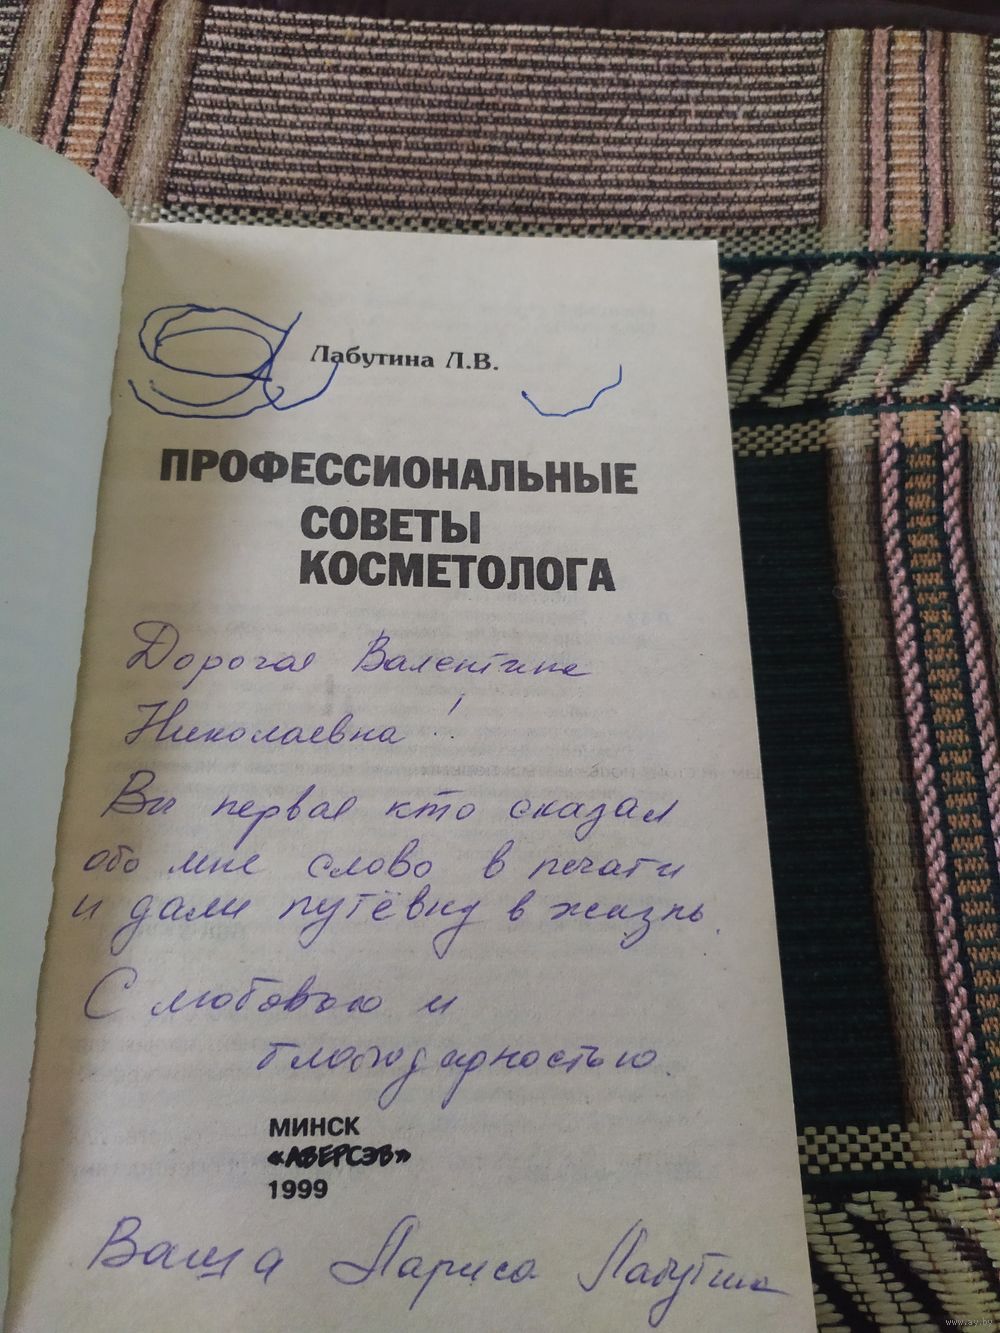 Лабутина Л.В.
ПРОФЕССИОНАЛЬНЫЕ
СОВЕТЫ
КОСМЕТОЛОГА
Дорогая Валентина
Николаевна!
Вы первая кто сказал
обо мне слово в печати
и дали путёвку в жизнь.
С любовью и
благодарностью.
МИНСК
«АВЕРСЭВ»
1999
Ваша Лариса Лабутина
www.ay.by